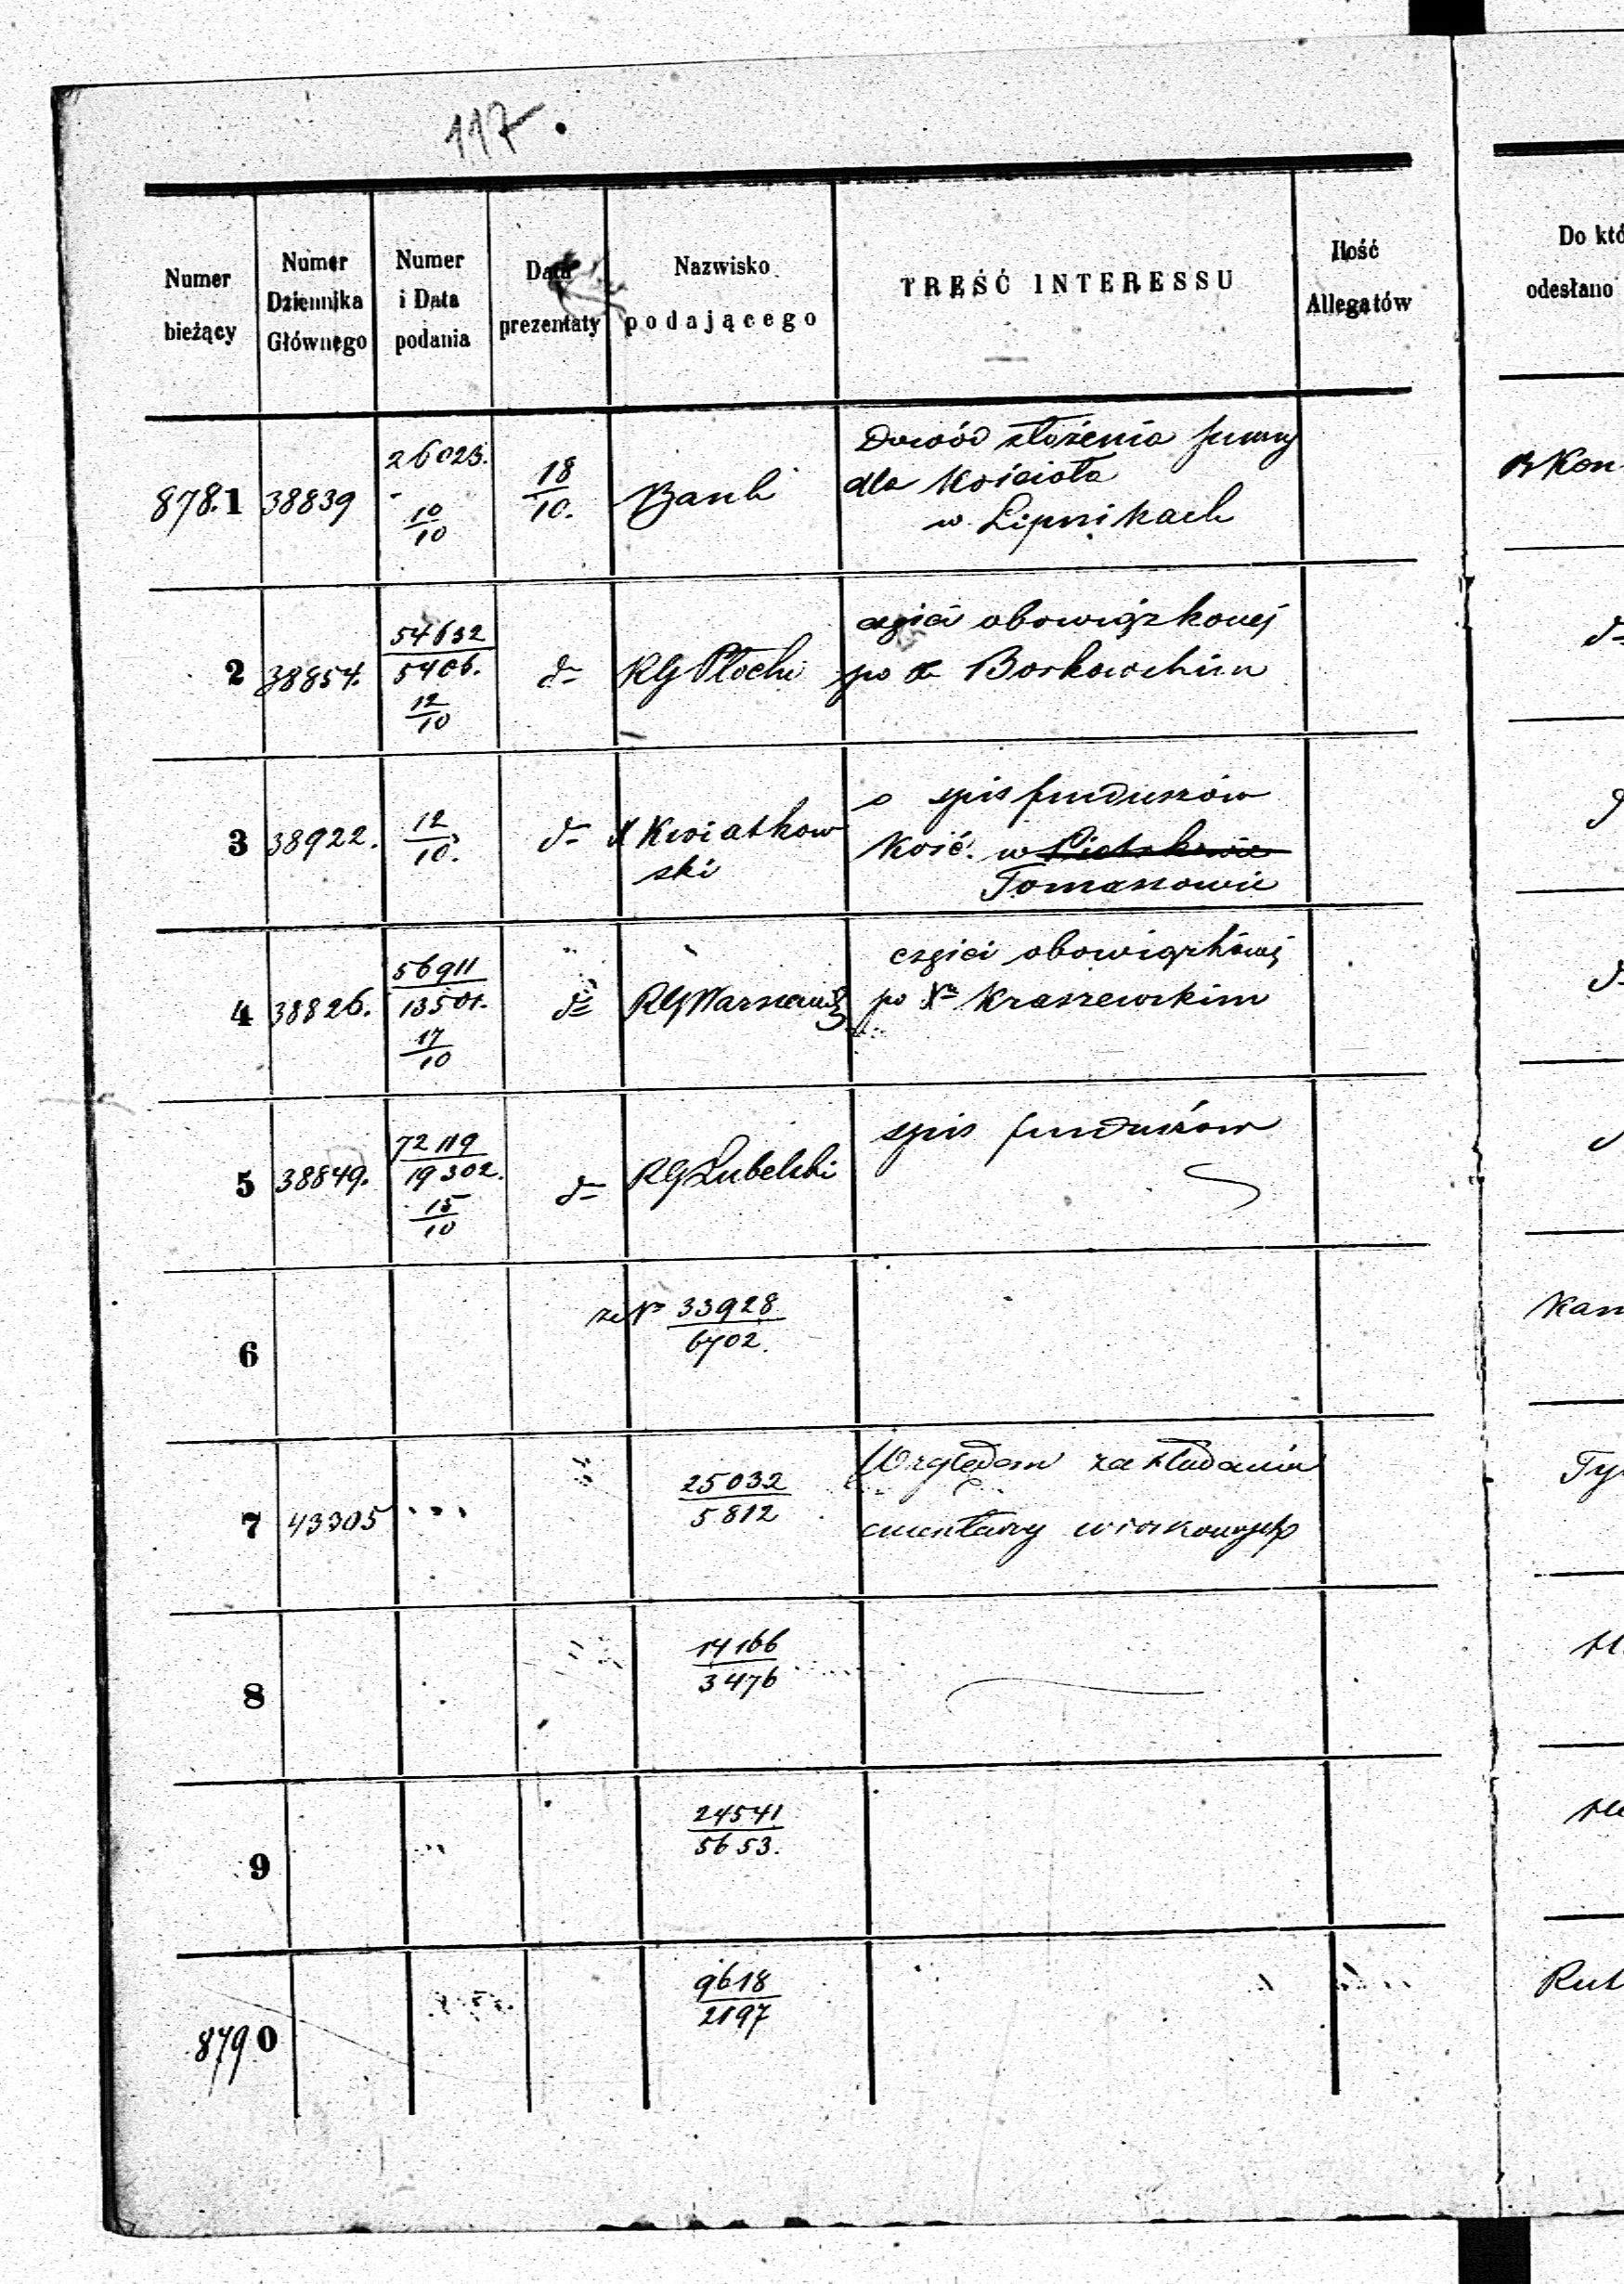 117.
Numer bieżący
Numer Dziennika Głównego
Numer i Data podania
Data prezentaty
Nazwisko podającego
TREŚĆ INTERESSU
Ilość Allegatów
Do któ
odesłano
8781 38839 26023. 10/10 18/10. Bank
Dowód złożenia summy
dla Kościoła
w Lipnikach
2 38854. 54632/5406. 12/10 do RG Płocki
części obowiązkowej
po Borkowskim
3 38922. 12/10. do X Kwiatkow
ski
o spis funduszów
Kość. w
Tomaszowie
4 38826. 56911/13501. 17/10 do RG Warszawski
części obowiązkowej
po Xu Kraszewskim
5 38849. 72119/19302. 15/10 do RG Lubelski
spis funduszów
6 ze No 33928/6702.
Kan
7 43305 25032/5812
Względem zakładania
cmentarzy wioskowych
Ty
8 14166/3476
9 24541/5653.
8790 9618/2197
Rut